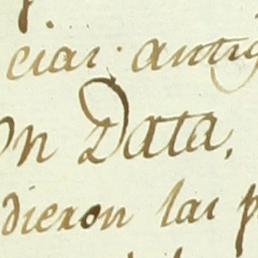 ciai antig
on Data,
dieron lai p